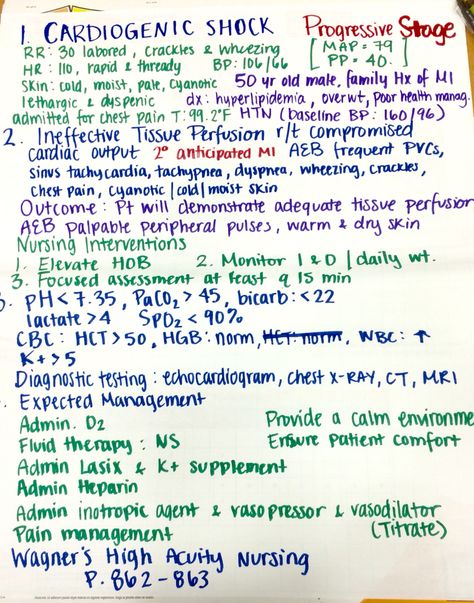 1. CARDIOGENIC SHOCK Progressive Stage
RR: 30 labored, crackles & wheezing [MAP = 79
HR: 110, rapid & thready BP: 106/66 PP = 40.]
Skin: cold, moist, pale, cyanotic 50 yr old male, family Hx of MI
lethargic & dyspenic dx: hyperlipidemia, overwt, poor health manag.
admitted for chest pain T: 99.2°F HTN (baseline BP: 160/96)
2. Ineffective Tissue Perfusion r/t compromised
cardiac output 2° anticipated MI AEB frequent PVCs,
sinus tachycardia, tachypnea, dyspnea, wheezing, crackles,
chest pain, cyanotic | cold | moist skin
Outcome: Pt will demonstrate adequate tissue perfusion
AEB palpable peripheral pulses, warm & dry skin
Nursing Interventions
1. Elevate HOB 2. Monitor I & O | daily wt.
3. Focused assessment at least q 15 min
3. pH < 7.35, PaCO2 > 45, bicarb: < 22
lactate > 4 SpO2 < 90%
CBC: HCT > 50, HGB: norm, HCT: norm, WBC: ↑
K+ > 5
Diagnostic testing: echocardiogram, chest X-RAY, CT, MRI
. Expected Management
Admin. O2 Provide a calm environme
Fluid therapy: NS Ensure patient comfort
Admin Lasix & K+ supplement
Admin Heparin
Admin inotropic agent & vasopressor & vasodilator
Pain management (Titrate)
Wagner's High Acuity Nursing
P. 862-863